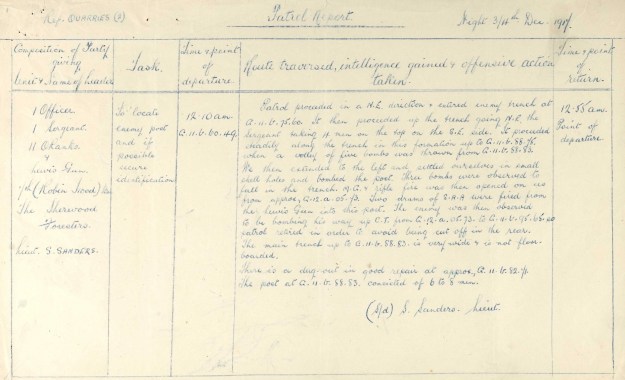 Ref. QUARRIES (2)
Patrol Report.
Night 3/4th Dec. 1917.
Composition of Party
giving
Unit & Name of Leader
Task.
Time & point
of
departure.
Route traversed, intelligence gained & offensive action
taken.
Time & point
of
return.
1 Officer
1 Sergeant.
11 O.Ranks
&
Lewis Gun.
7th (Robin Hood) Bn
The Sherwood
Foresters
Lieut. S. SANDERS.
To locate
enemy post
and if
possible
secure
identification
12.10 am.
G.11.b.60.49.
Patrol proceeded in a N.E. direction & entered enemy trench at
G.11.b.75.60. It then proceeded up the trench going N.E, the
sergeant taking 4 men on the top on the S.E. side. It proceeded
steadily along the trench in this formation up to G.11.b.88.78.
when a volley of five bombs was drawn from G.11.b.88.83.
We then extended to the left and settled ourselves in small
shell holes and bombed the post. Three bombs were observed to
fall in the trench. M.G. & rifle fire was then opened on us
from approx, G.12.a. Two drums of S.A.A were fired from
the Lewis Gun into this post. The enemy was then observed
to be bombing his way up C.T. from G.12.a. to G.11.b.
patrol retired in order to avoid being cut off in the rear.
The main trench up to G.11.b.88.83. is very wide & is not floor-
boarded.
There is a dug-out in good repair at approx, G.11.b.82.71.
The post at G.11.b.88.83. consisted of 6 to 8 men.
(Sgd) S. Sanders. Lieut.
12.55 am.
Point of
departure.